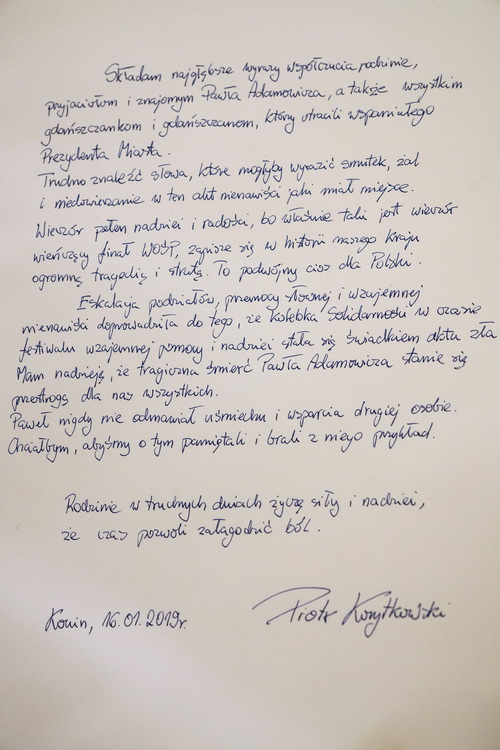 Składam najgłębsze wyrazy współczucia rodzinie,
przyjaciołom i znajomym Pawła Adamowicza, a także wszystkim
gdańszczankom i gdańszczanom, którzy utracili wspaniałego
Prezydenta Miasta.
Trudno znaleźć słowa, które mogłyby wyrazić smutek, żal
i niedowierzanie w ten akt nienawiści jaki miał miejsce.
Wieczór pełen nadziei i radości, bo właśnie taki jest wieczór
wieńczący finał WOŚP, zapisze się w historii naszego kraju
ogromną tragedią i stratą. To podwójny cios dla Polski.
Eskalacja podziałów, przemocy słownej i wzajemnej
nienawiści doprowadziła do tego, że kolebka Solidarności w czasie
festiwalu wzajemnej pomocy i nadziei stała się świadkiem aktu zła
Mam nadzieję, że tragiczna śmierć Pawła Adamowicza stanie się
przestrogą dla nas wszystkich.
Paweł nigdy nie odmawiał uśmiechu i wsparcia drugiej osobie.
Chciałbym, abyśmy o tym pamiętali i brali z niego przykład.
Rodzinie w trudnych dniach życzę siły i nadziei,
że czas pozwoli załagodzić ból.
Konin, 16.01.2019r.
Piotr Korytkowski